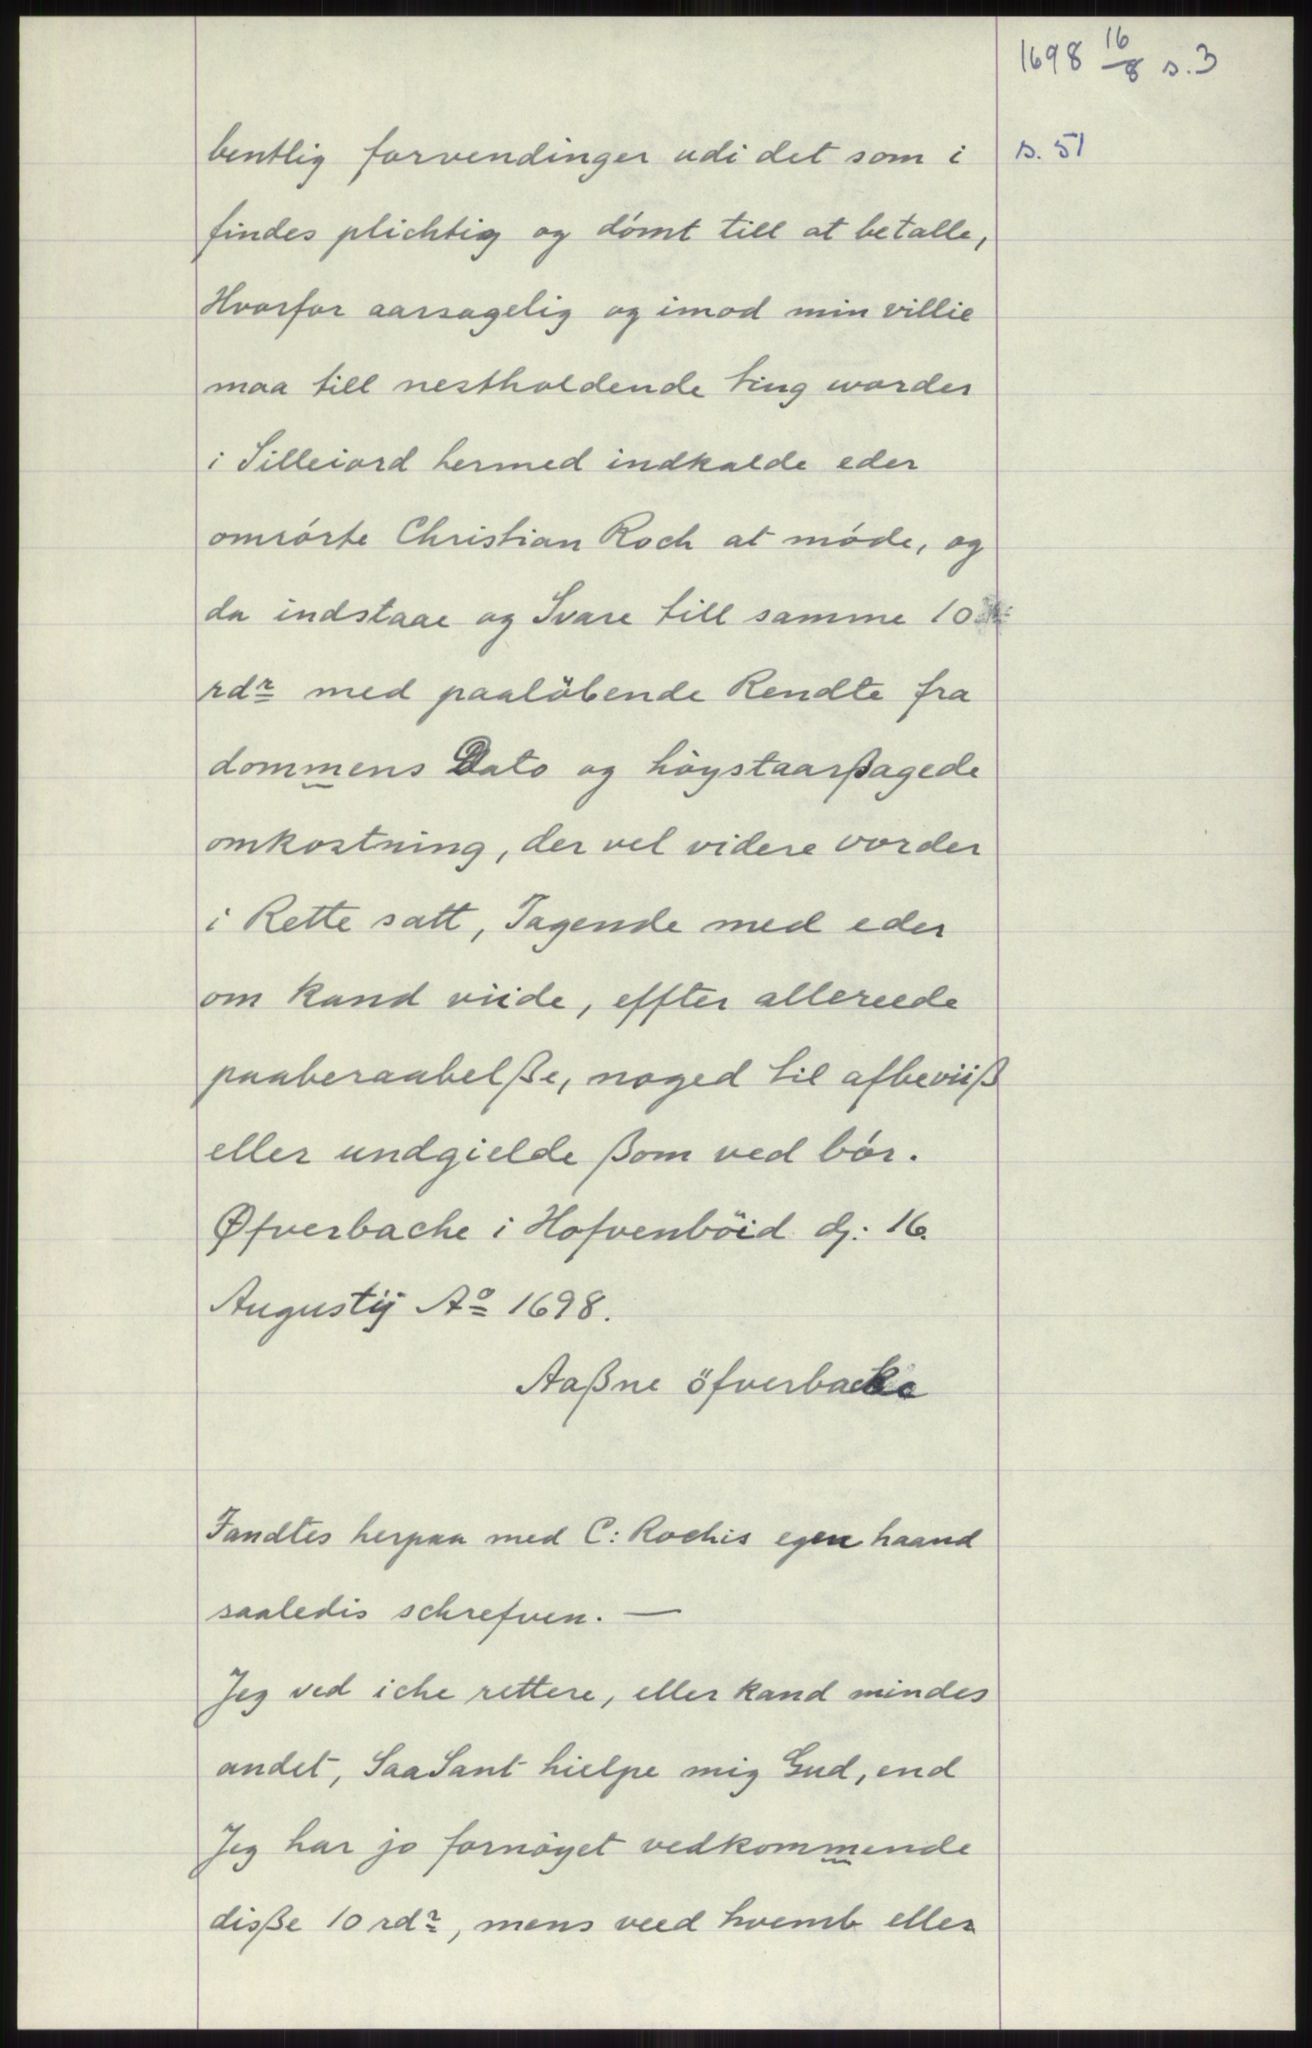 1698 16/8 s. 3
s. 51
bentlig forvendinger udi det som i
findes plichtig og dómt till at betalle,
Hvorfor aarsagelig og imod min villie
maa till nestholdende ting worder
i Silleiord hermed indkalde eder
omrórte Christian Roch at móde, og
da indstaae og Svare till samme 10
rdr med paalöbende Rendte fra
dommens Dato og höystaarßagede
omkostning, der vel videre vorder
i Rette satt, Tagende med eder
om kand viide, effter allereede
paaberaabelße, noged til afbeviiß
eller undgielde ßom ved bór.
Øfverbache i Hofvenböid dj: 16.
Augustij Ao 1698.
Aaßne öfverbacke
Fandtes herpaa med C: Rochis egen haand
saaledis schrefven. —
Jeg ved iche rettere, eller kand mindes
andet, SaaSant hielpe mig Gud, end
Jeg har jo fornöyet vedkommende
disße 10 rdr, mens veed hvemb eller